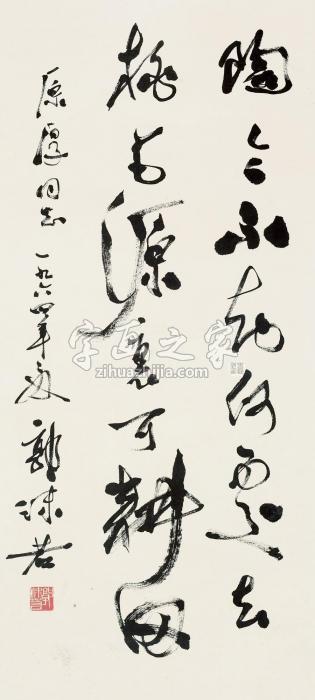 陶令不知何處去
桃花源裏可耕田
同志 一九六四年夏 郭沫若
字画之家
zihuazhijia.com